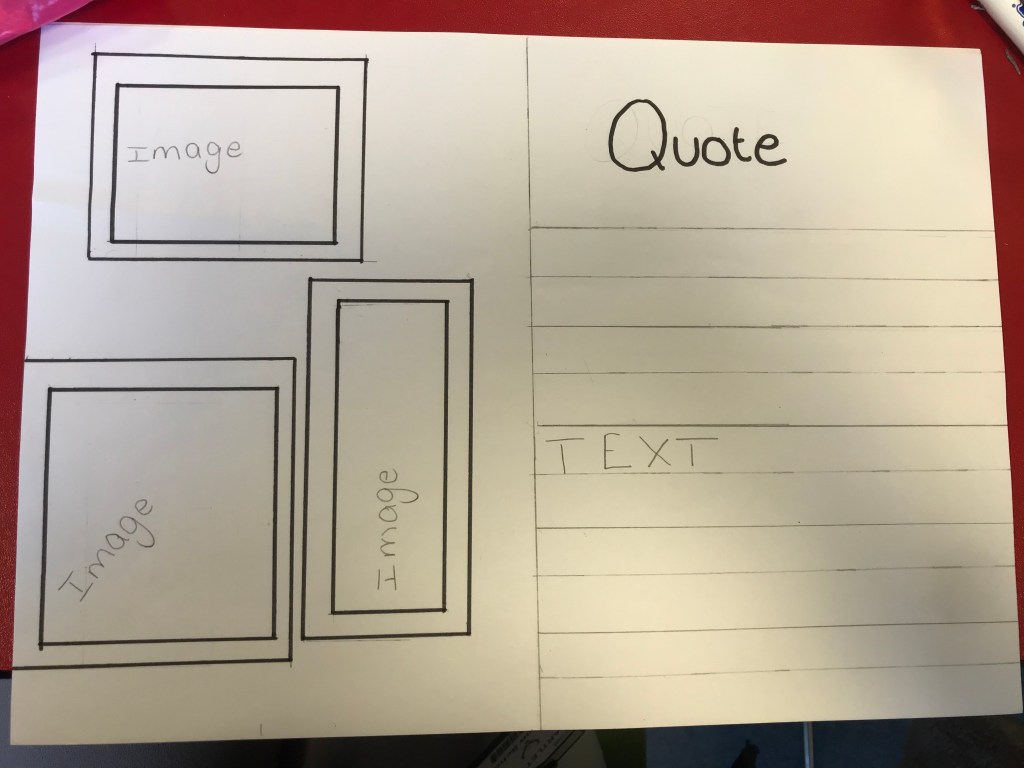 Image
Image
Image
Quote
TEXT